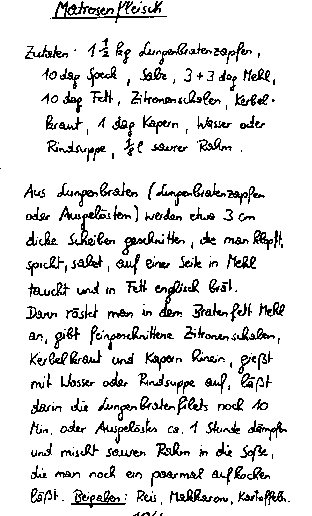 Matrosenfleisch
Zutaten: 1 1/2 kg Lungenbratenzapfen,
10 dag Speck, Salz, 3+3 dag Mehl,
10 dag Fett, Zitronenschalen, Kerbel-
kraut, 1 dag Kapern, Wasser oder
Rindsuppe, 1/8 l saurer Rahm.
Aus Lungenbraten (Lungenbratenzapfen
oder Ausgelöstem) werden etwa 3 cm
dicke Scheiben geschnitten, die man klopft,
spickt, salzt, auf einer Seite in Mehl
taucht und in Fett englisch brät.
Dann röstet man in dem Bratenfett Mehl
an, gibt feingeschnittene Zitronenschalen,
Kerbelkraut und Kapern hinein, gießt
mit Wasser oder Rindsuppe auf, läßt
darin die Lungenbratenfilets noch 10
Min. oder Ausgelöstes ca. 1 Stunde dämpfen
und mischt sauren Rahm in die Soße,
die man noch ein paarmal aufkochen
läßt. Beigaben: Reis, Makkaroni, Kartoffeln.